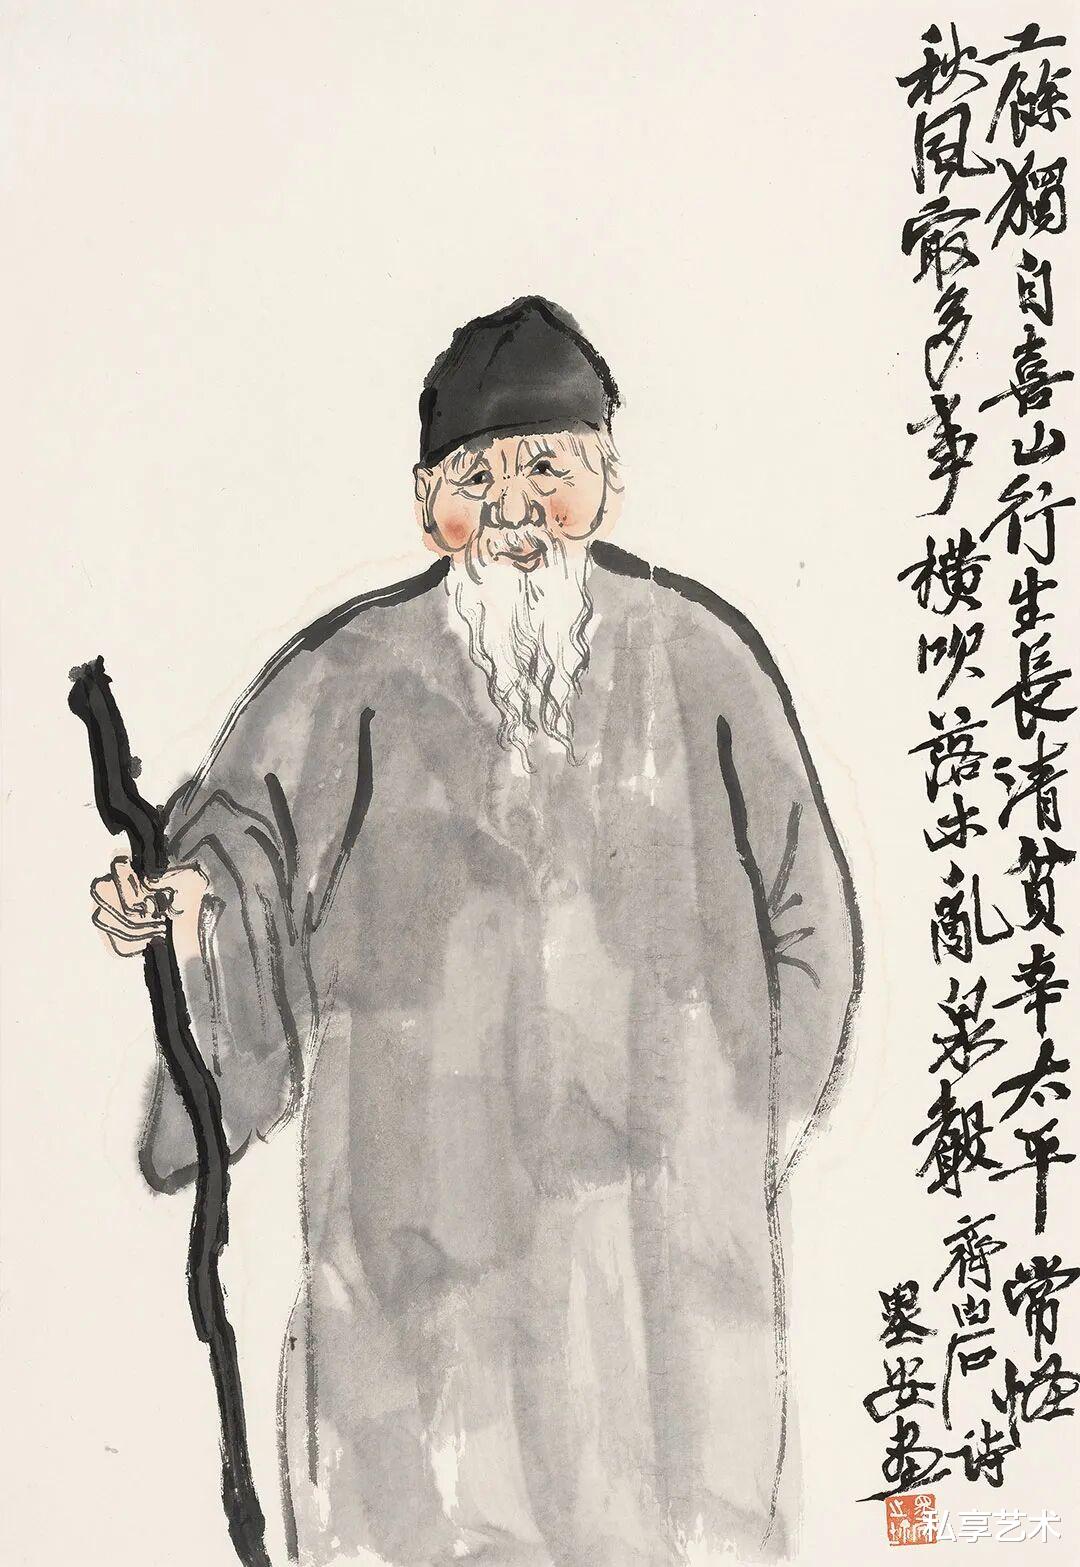 工餘獨自喜山行生長清貧幸太平常怪
秋風最多事橫吹落木亂泉聲齊白石詩
墨安画
私享艺术